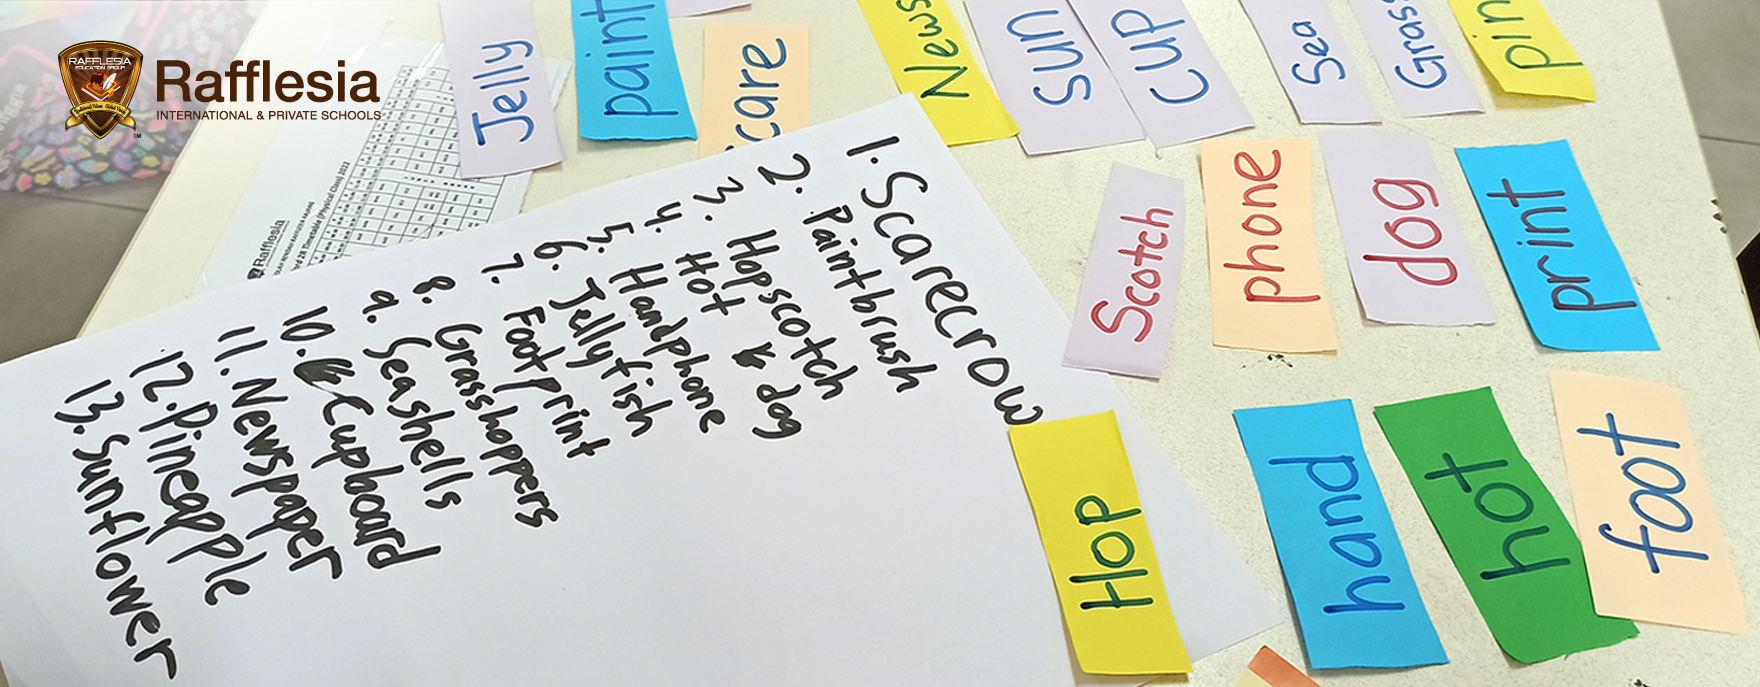 RAFFLESIA
EDUCATION GROUP
Rafflesia
INTERNATIONAL & PRIVATE SCHOOLS
TM
Jelly
paint
care
News
sun
cup
Sea
Grass
pin
Scotch
phone
dog
print
Hop
hand
hot
foot
1. Scarecrow
2. Paintbrush
3. Hopscotch
4. Hot dog
5. Handphone
6. Jellyfish
7. Footprint
8. Grasshoppers
9. Seashells
10. Cupboard
11. Newspaper
12. Pineapple
13. Sunflower
Rafflesia
Timetable (Physical Class) 2022